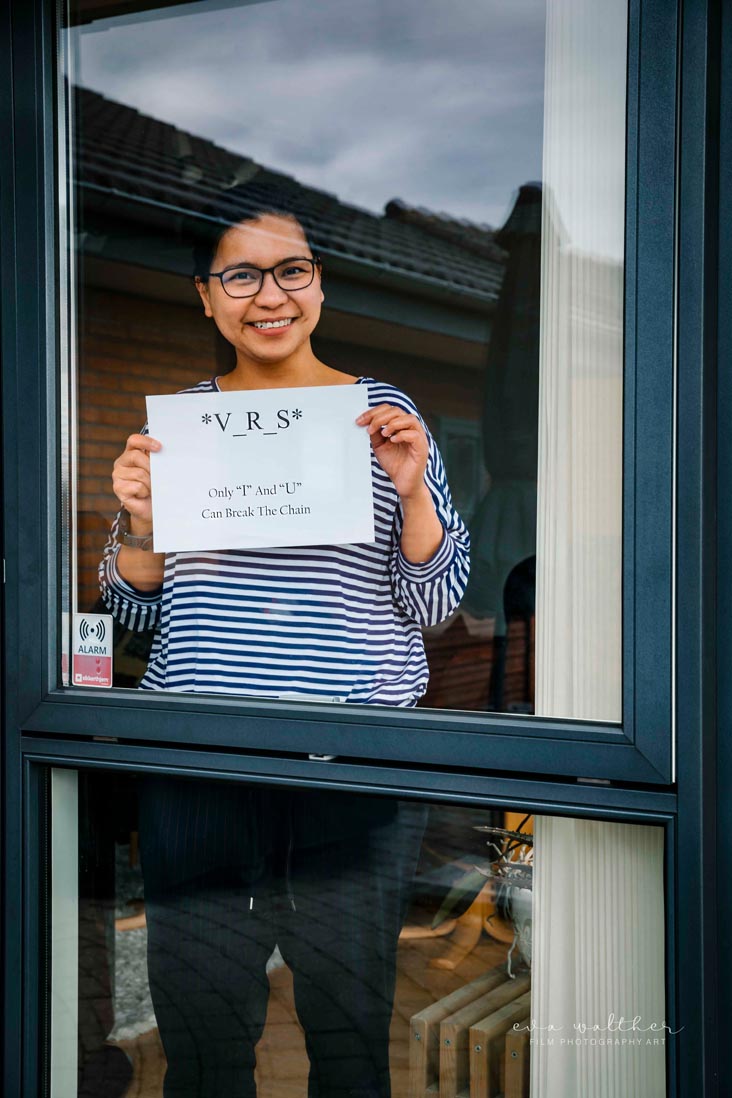 *V_R_S*
Only "I" And "U"
Can Break The Chain
ALARM
eva walther
FILM PHOTOGRAPHY ART